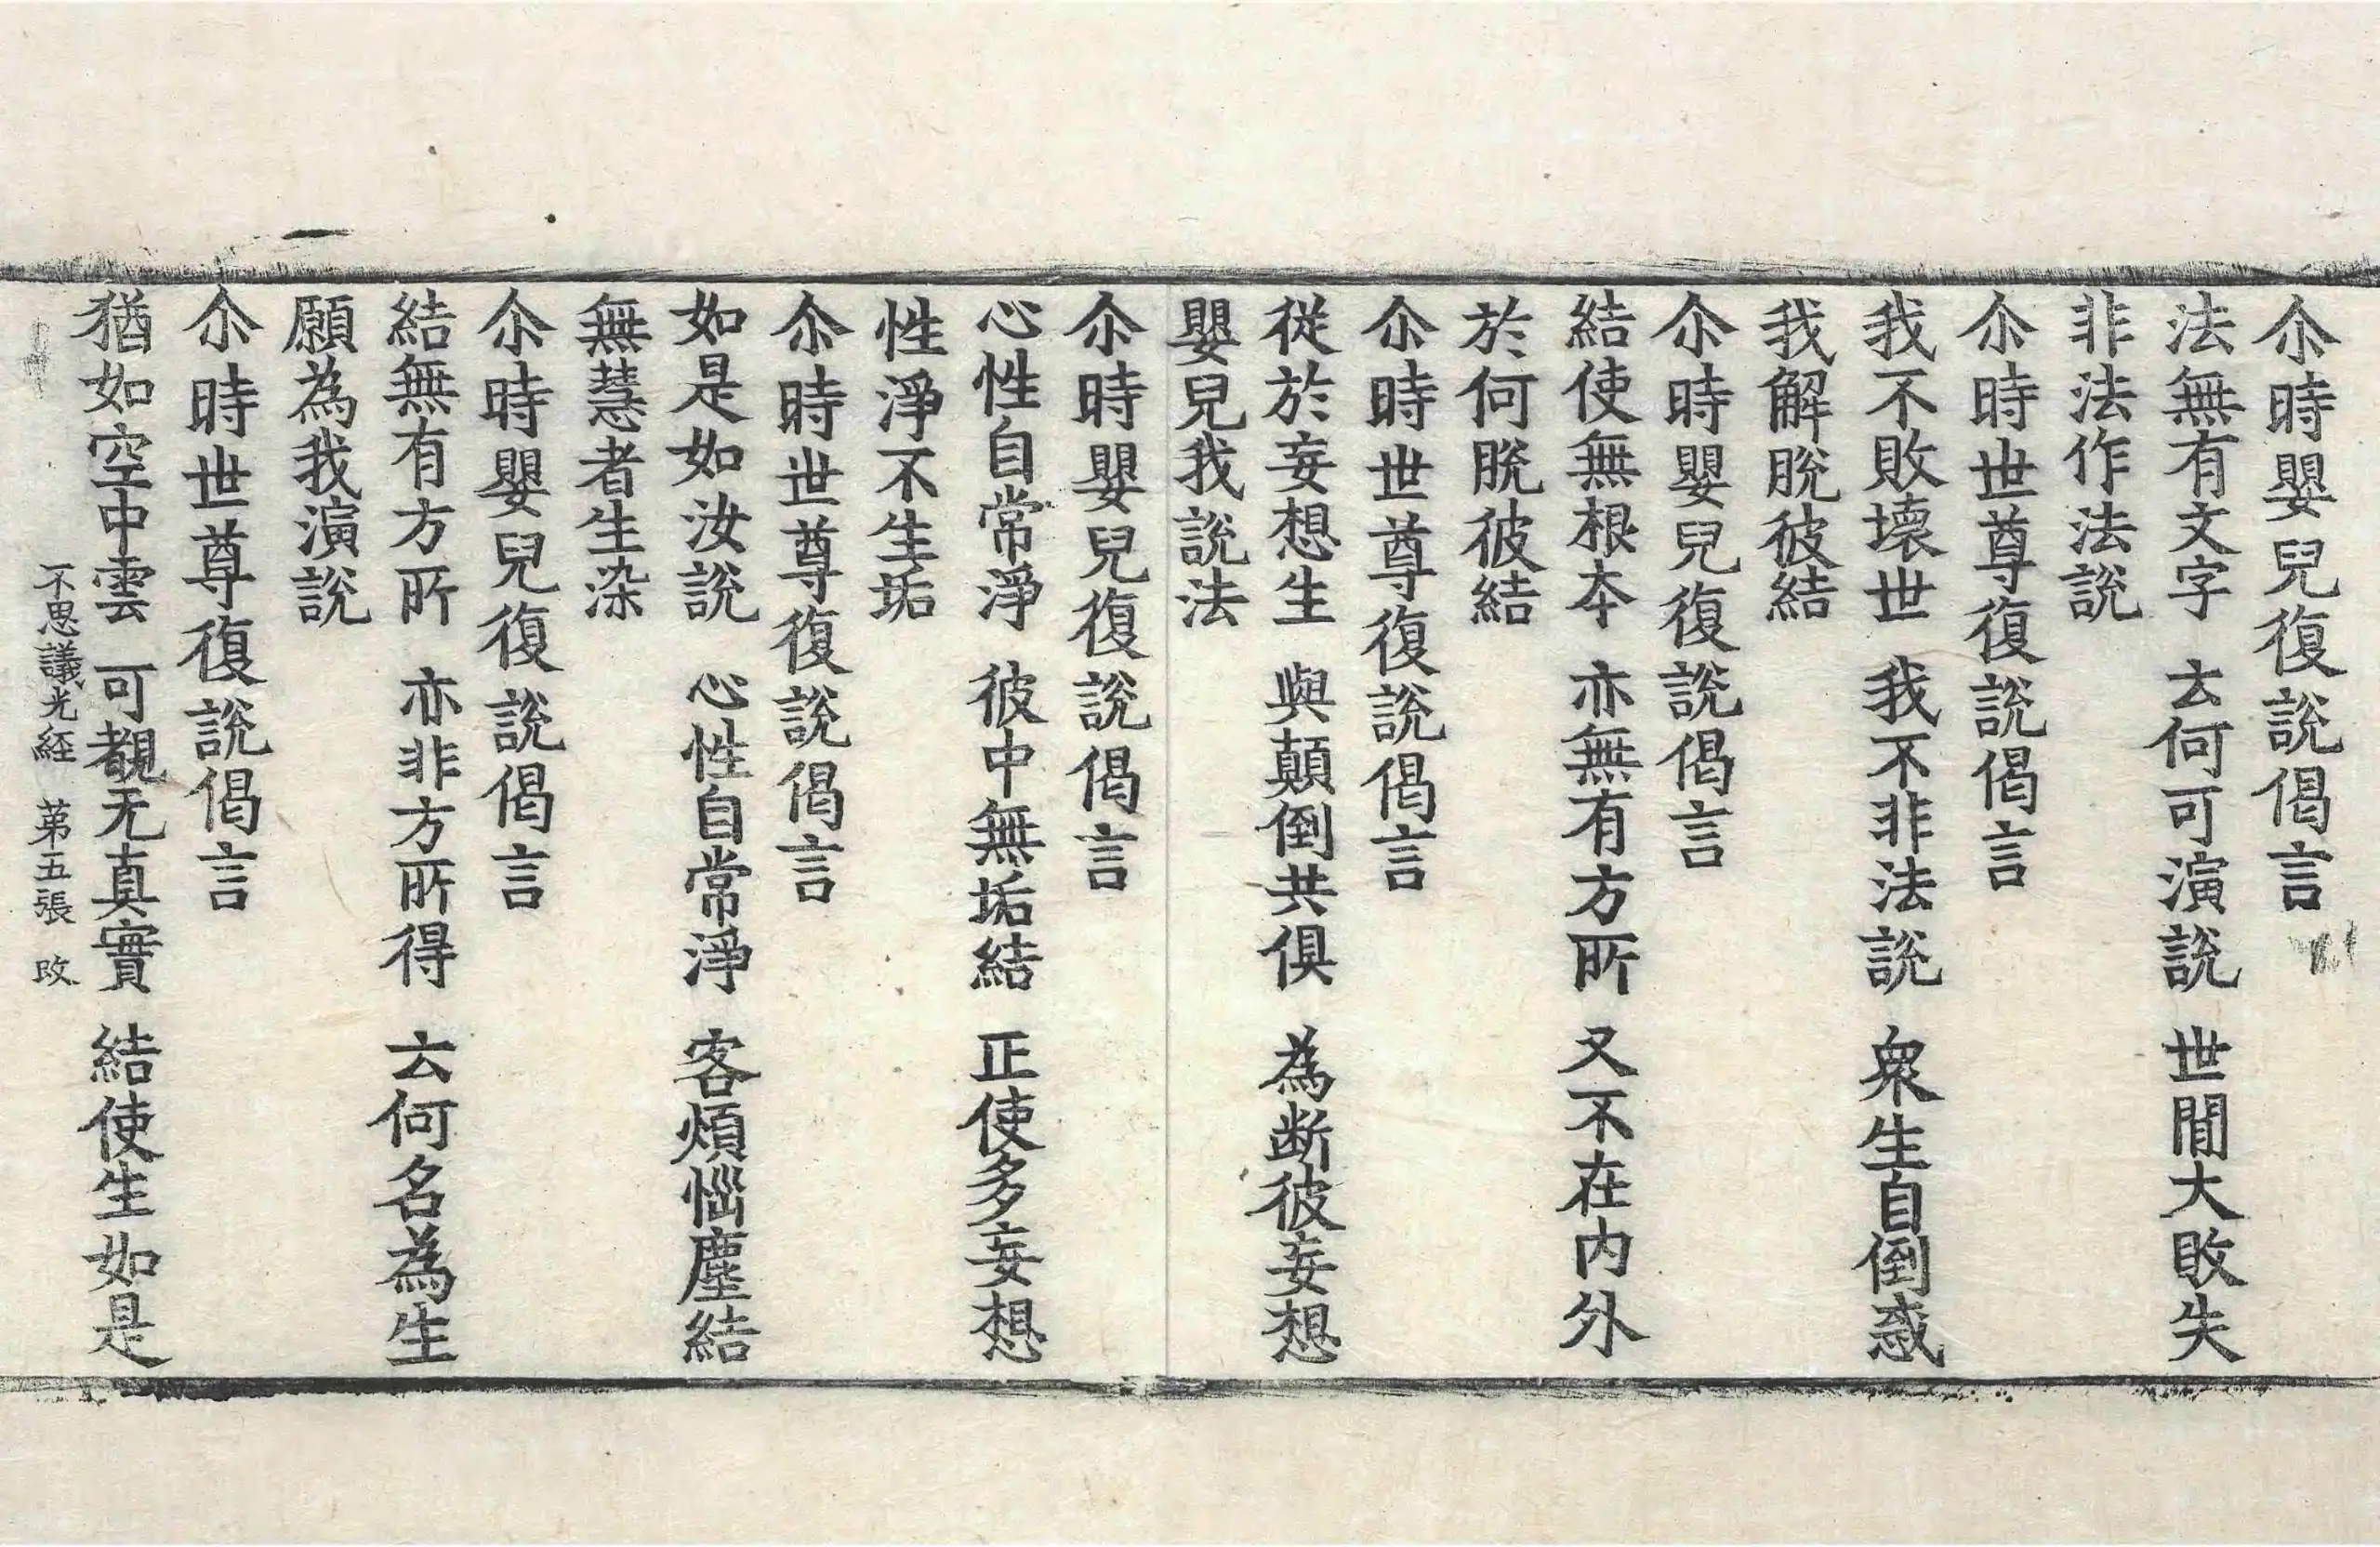 尒時嬰兒復說偈言
法無有文字　去何可演說　世間大敗失
非法作法說
尒時世尊復說偈言
我不敗壞世　我不非法說　衆生自倒惑
我解脫彼結
尒時嬰兒復說偈言
結使無根本　亦無有方所　又不在內外
於何脫彼結
尒時世尊復說偈言
從於妄想生　與顛倒共俱　為断彼妄想
嬰兒我說法
尒時嬰兒復說偈言
心性自常淨　彼中無垢結　正使多妄想
性淨不生垢
尒時世尊復說偈言
如是如汝說　心性自常淨　客煩惱塵結
無慧者生染
尒時嬰兒復說偈言
結無有方所　亦非方所得　去何名為生
願為我演說
尒時世尊復說偈言
猶如空中雲　可覩无真實　結使生如是
不思議光経　苐五張　改